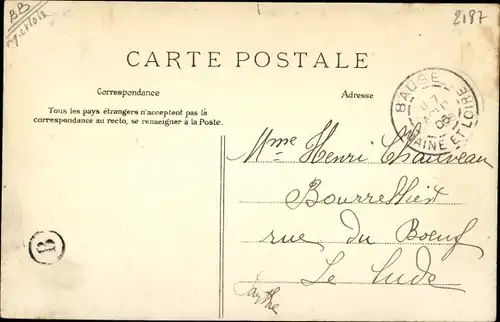 BB
2187
CARTE POSTALE
Correspondance
Adresse
Tous les pays étrangers n'acceptent pas la
correspondance au recto, se renseigner à la Poste.
BAUGE
MAINE ET LOIRE
Mme Henri Chauveau
Bourrellier
rue du Boeuf
Le Lude
Sarthe
B